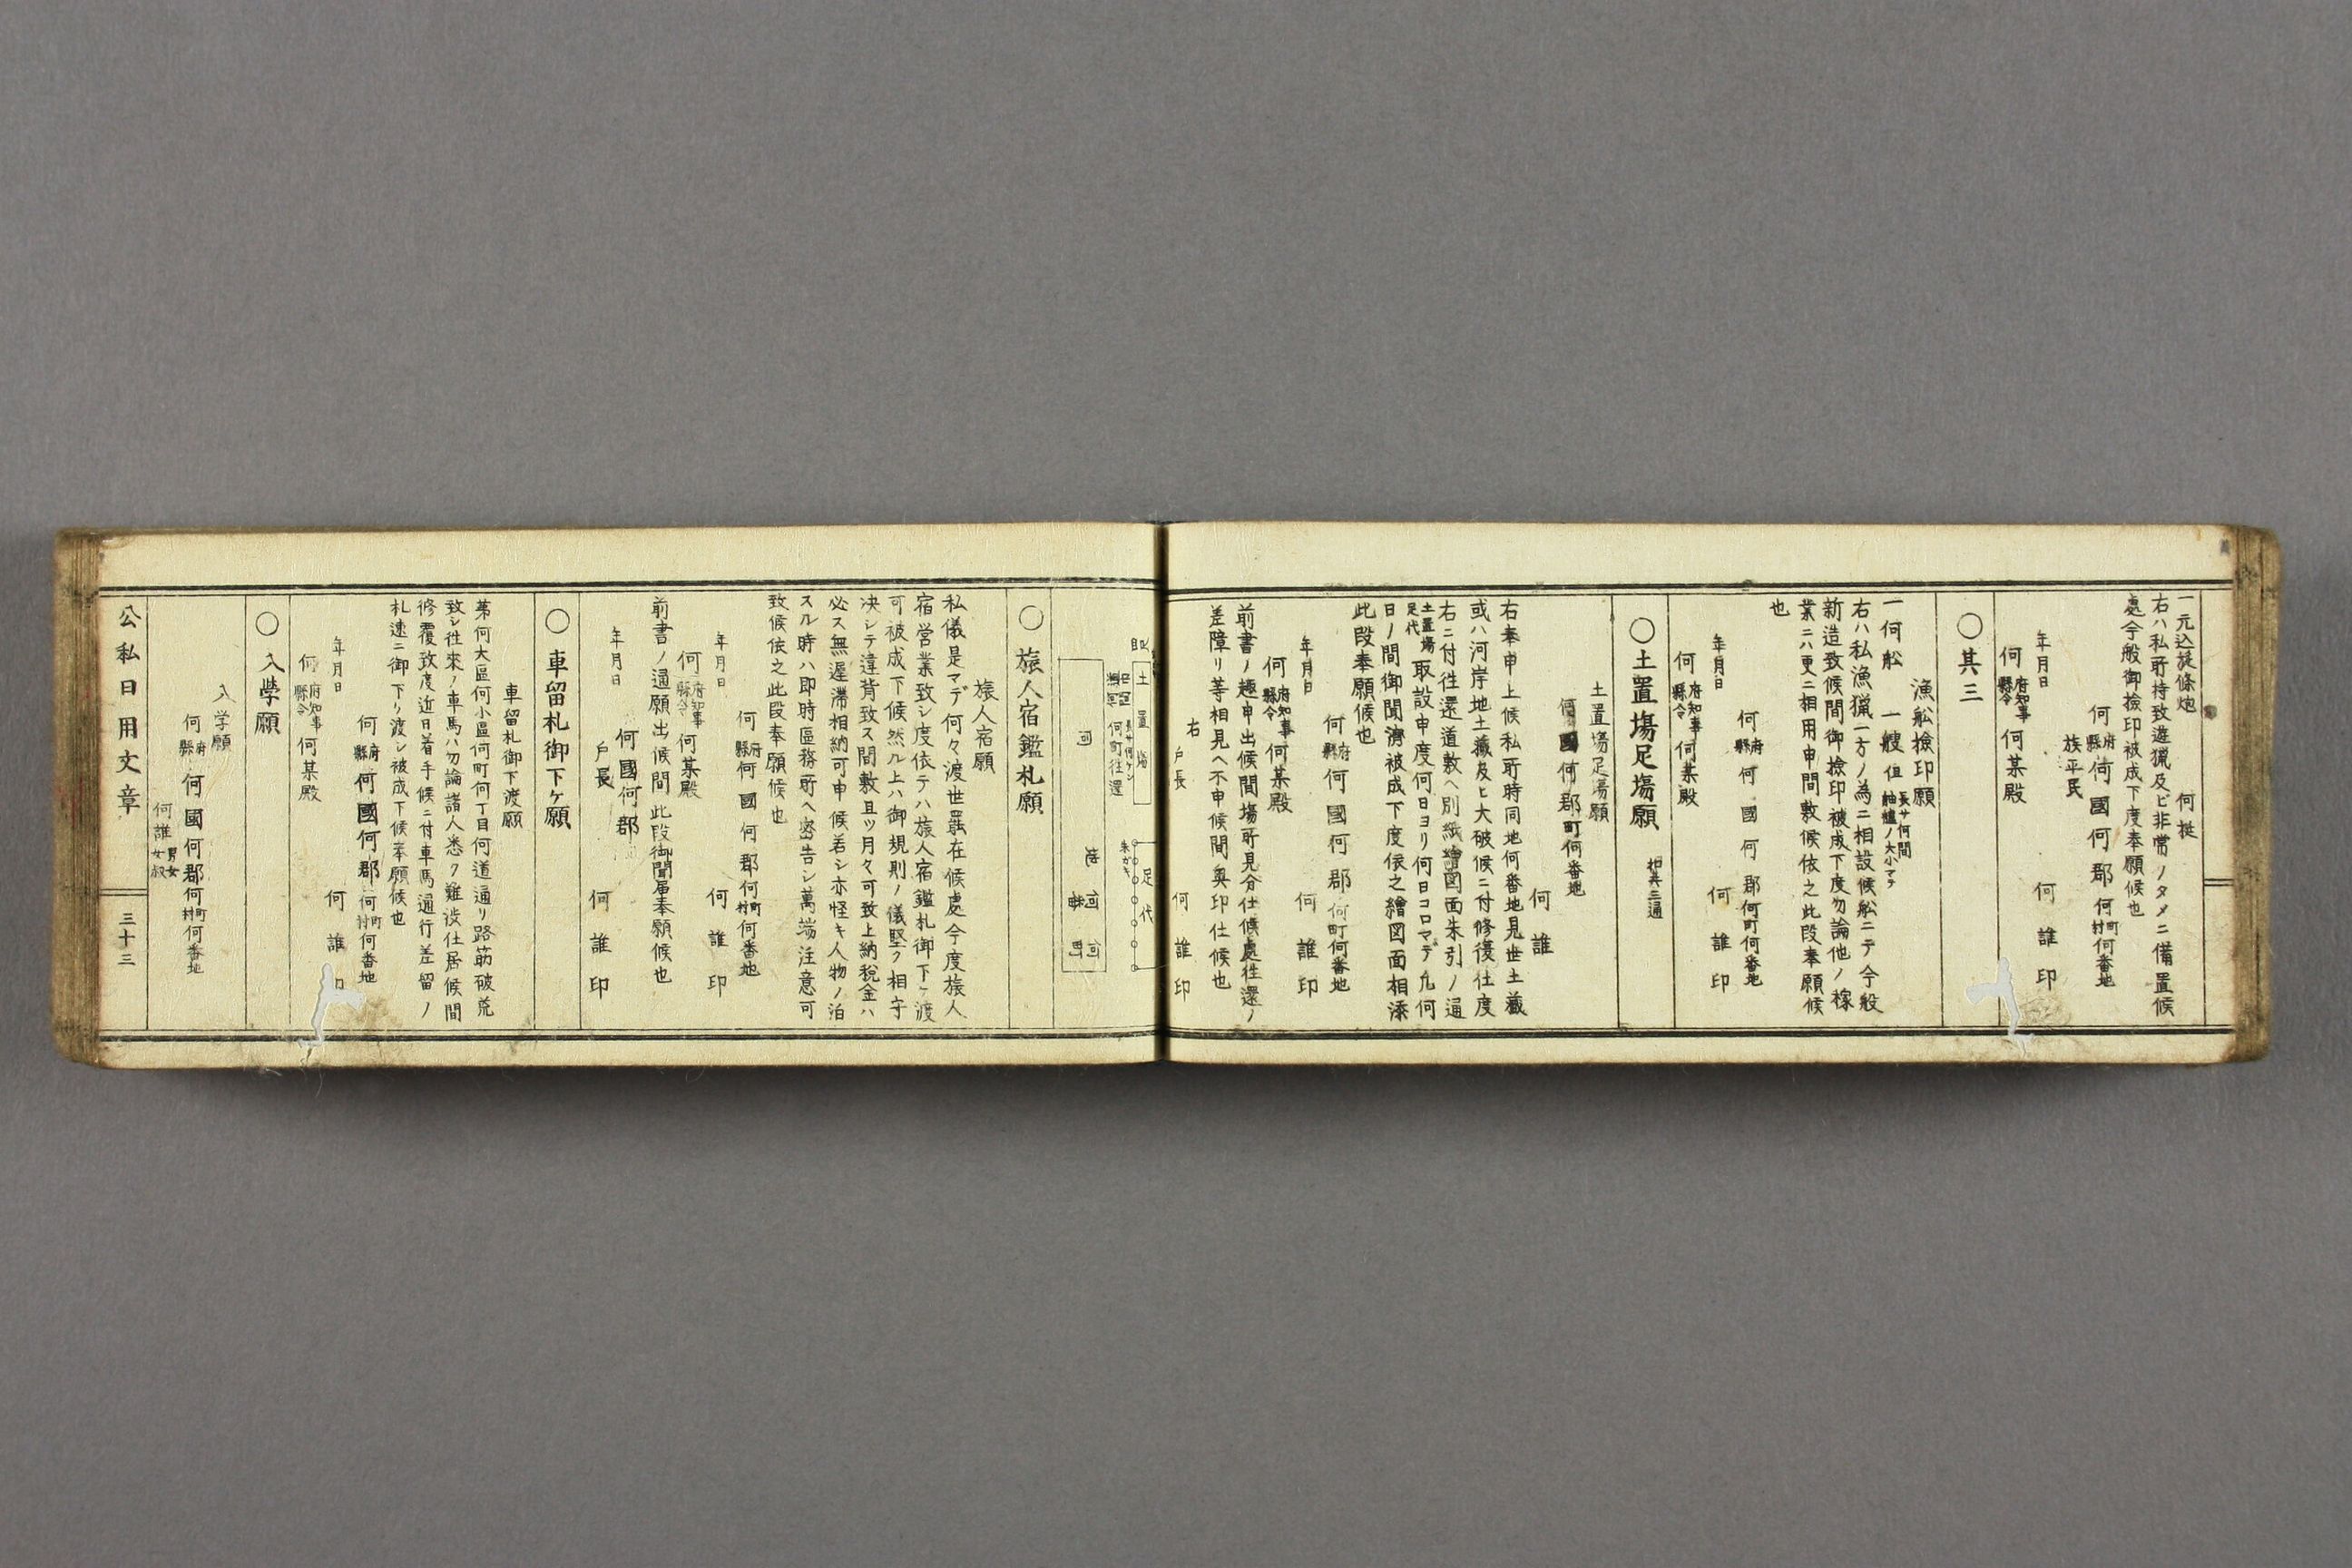 一元込旋條炮 何挺
右ハ私所持致遊猟及ビ非常ノタメニ備置候
處今般御撿印被成下度奉願候也
何府縣何國何郡何町村何番地
族平民
年月日 何誰印
何府知事縣令何某殿
○其三
漁舩撿印願
一何舩 一艘 但長サ何間舳艫ノ大小マデ
右ハ私漁獵一方ノ為ニ相設候舩ニテ今般
新造致候間御撿印被成下度勿論他ノ稼
業ニハ更ニ相用申間敷候依之此段奉願候
也
何府縣何國何郡何町何番地
年月日 何誰印
何府知事縣令何某殿
○土置塲足塲願
土置塲足塲願
何國何郡町何番地
何誰
右奉申上候私所時同地何番地見世土藏
或ハ河岸地土藏及ヒ大破候ニ付修復仕度
右ニ付往還道敷ヘ別紙繪図面朱引ノ通
土置塲足代取設申度何日ヨリ何日コロマデ凡何
日ノ間御聞濟被成下度依之繪図面相添
此段奉願候也
何府縣何國何郡何町何番地
年月日 何誰印
何府知事縣令何某殿
前書ノ趣申出候間塲所見分仕候處往還ノ
差障リ等相見ヘ不申候間奥印仕候也
右戸長 何誰印
土置塲
足代
何町往還
○旅人宿鑑札願
旅人宿願
私儀是マデ何々渡世罷在候處今度旅人
宿営業致シ度依テハ旅人宿鑑札御下ケ渡
可被成下候然ル上ハ御規則ノ儀堅ク相守
决シテ違背致ス間敷且ツ月々可致上納税金ハ
必ス無遅滞相納可申候若シ亦怪キ人物ノ泊
スル時ハ即時區務所ヘ密告シ萬端注意可
致候依之此段奉願候也
何府縣何國何郡何町村何番地
年月日 何誰印
何府知事縣令何某殿
前書ノ通願出候間此段御聞届奉願候也
何國何郡
年月日 戸長 何誰印
○車留札御下ケ願
車留札御下渡願
第何大區何小區何町何丁目何道通リ路筋破荒
致シ往來ノ車馬ハ勿論諸人悉ク難渋仕居候間
修覆致度近日着手候ニ付車馬通行差留ノ
札速ニ御下リ渡シ被成下候奉願候也
何府縣何國何郡何町村何番地
年月日 何誰印
何府知事縣令何某殿
○入學願
入学願
何府縣何國何郡何町村何番地
何誰男女叔
公私日用文章 三十三